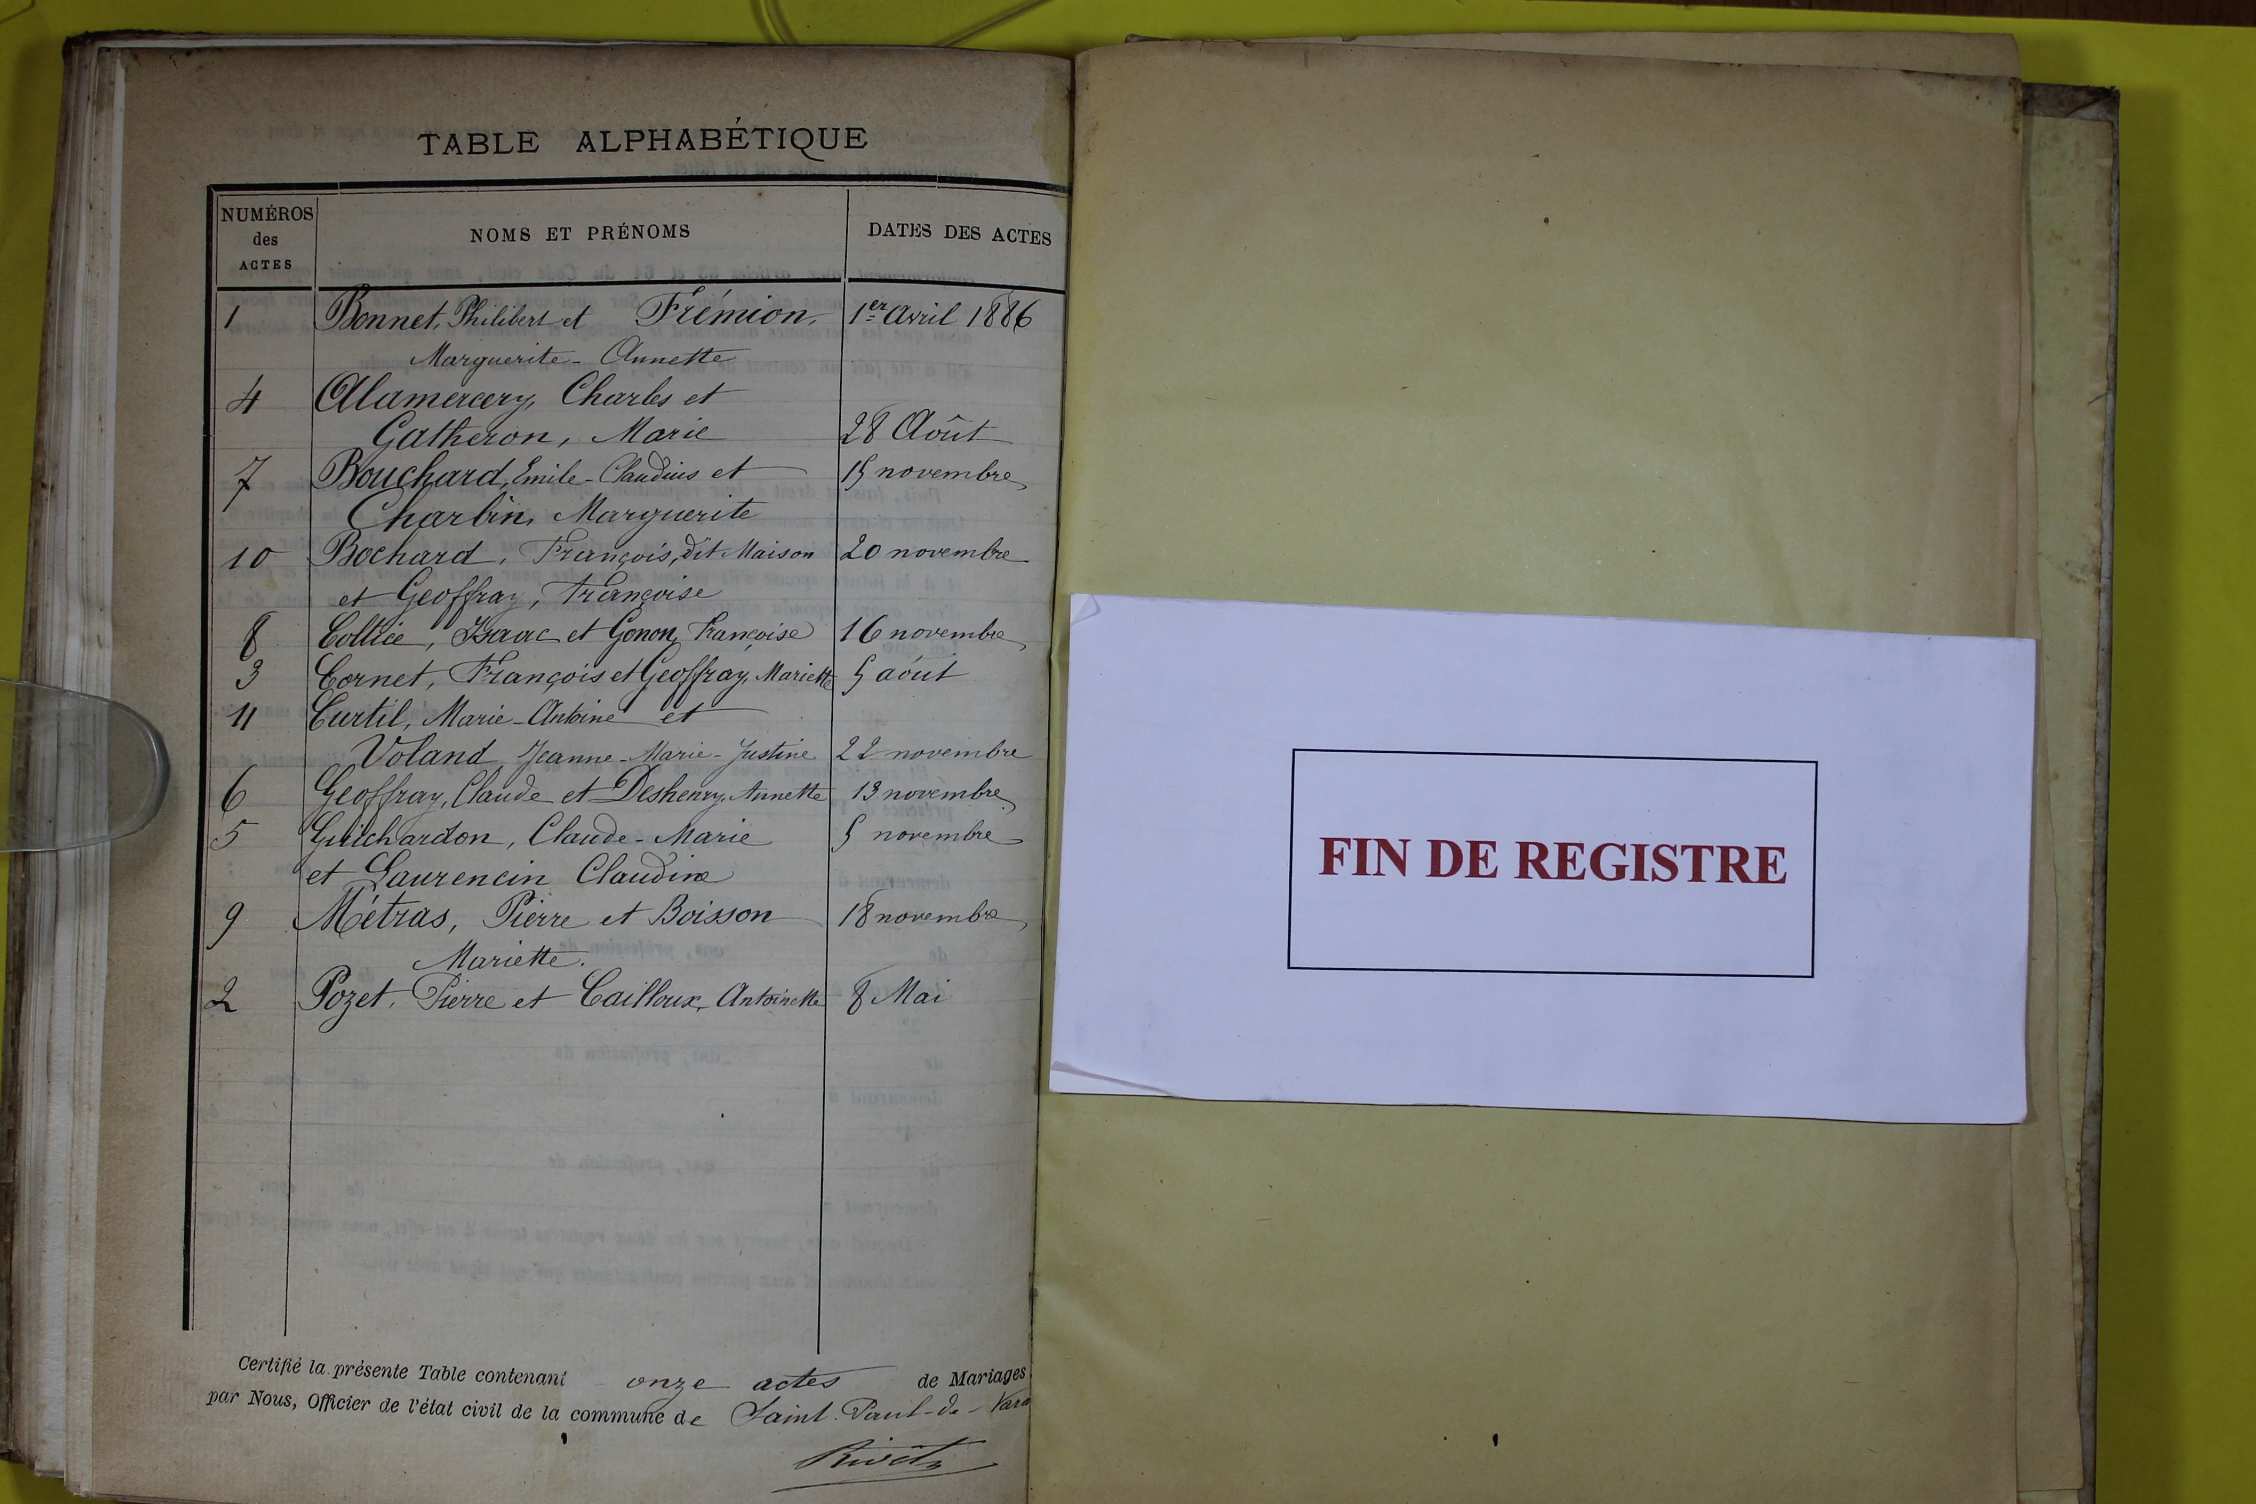 TABLE ALPHABÉTIQUE
NUMÉROS des ACTES
NOMS ET PRÉNOMS
DATES DES ACTES
1 Bonnet, Philibert et Frémion, 1er avril 1886
Marguerite-Annette
4 Alamercery, Charles et
Gatheron, Marie 28 Août
7 Bouchard, Emile-Claudius et 15 novembre
Charbin, Marguerite
10 Bochard, François, dit Maison 20 novembre
et Geoffray, Françoise
8 Collice, Isaac et Gonon, Françoise 16 novembre
3 Cornet, François et Geoffray, Mariette 5 août
11 Curtil, Marie-Antoine et
Voland Jeanne-Marie-Justine 22 novembre
6 Geoffray, Claude et Deshenry, Annette 13 novembre
5 Guichardon, Claude-Marie 5 novembre
et Laurencin Claudine
9 Métras, Pierre et Boisson 18 novembre
Mariette.
2 Pozet, Pierre et Cailloux, Antoinette 8 Mai
Certifié la présente Table contenant onze actes de Mariages
par Nous, Officier de l'état civil de la commune de Saint-Paul-de-Vara
FIN DE REGISTRE